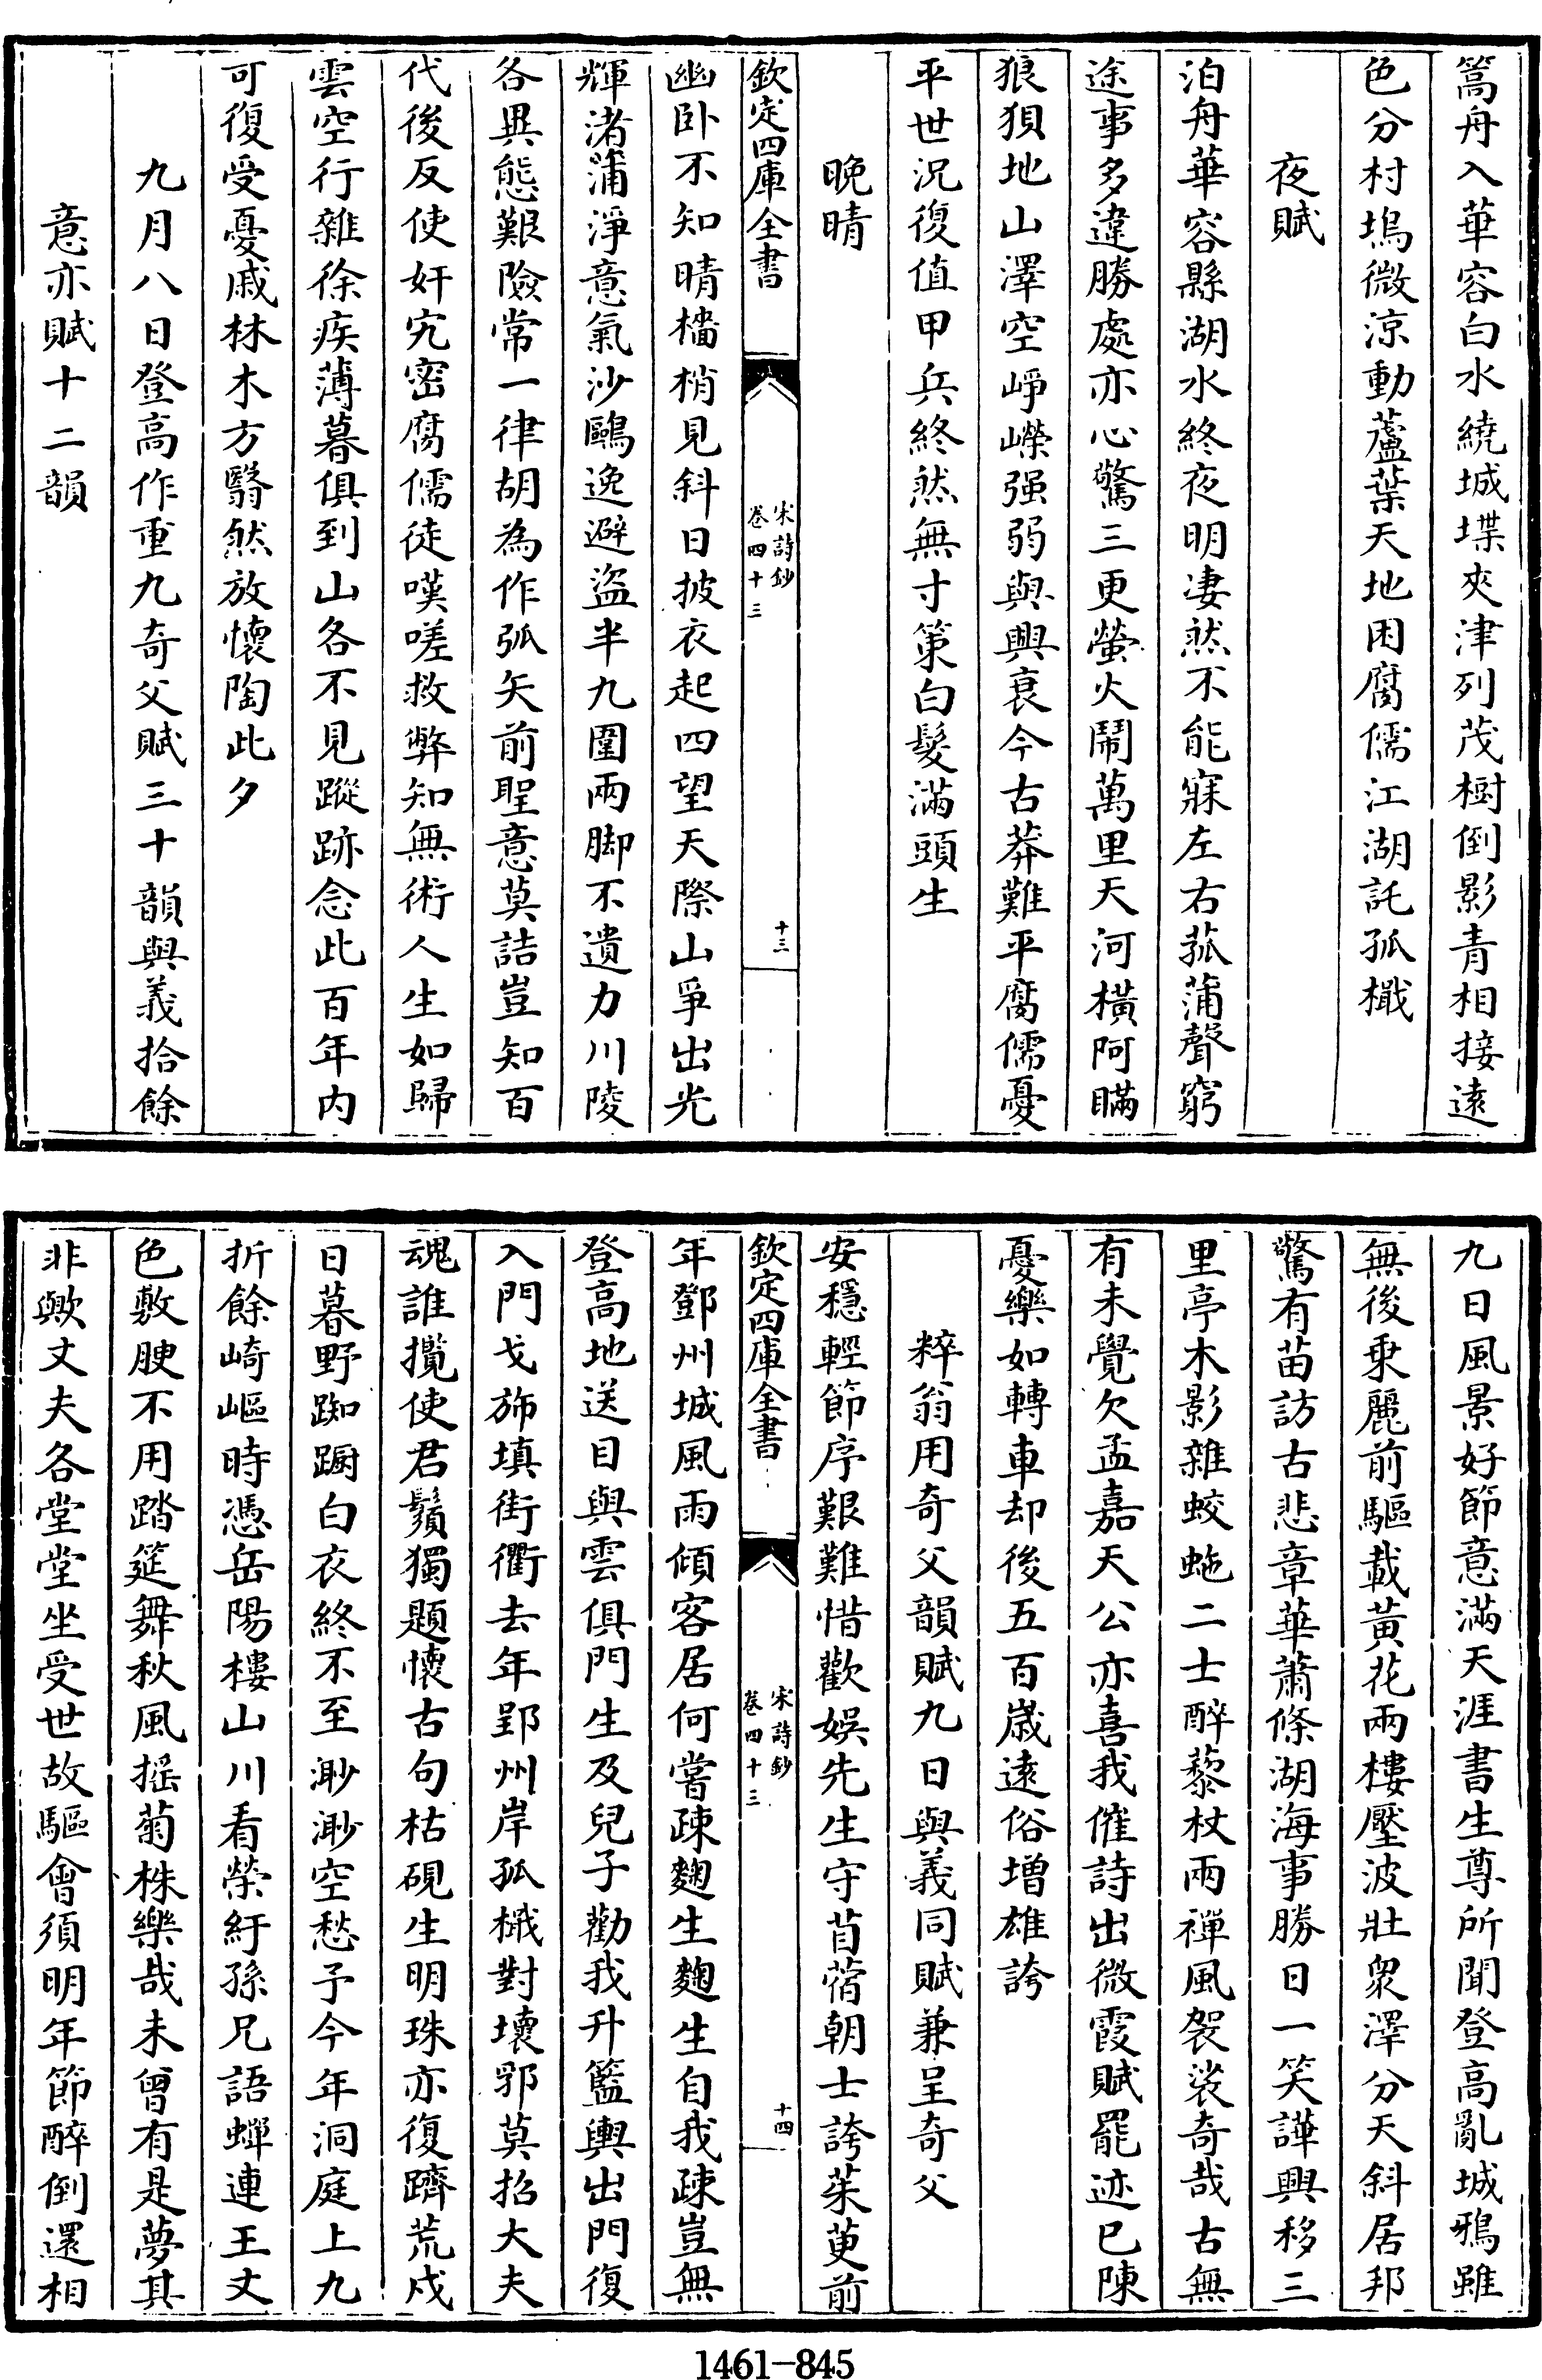 篙舟入華容白水繞城堞夾津列茂樹倒影青相接遠
色分村塢微涼動蘆葉天地困腐儒江湖託孤檝
夜賦
泊舟華容縣湖水終夜明凄然不能寐左右菰蒲聲窮
途事多違勝處亦心驚三更螢火鬧萬里天河橫阿瞞
狼狽地山澤空崢嶸强弱與興衰今古莽難平腐儒憂
平世況復值甲兵終然無寸策白髮滿頭生
晚晴
欽定四庫全書
宋詩鈔
卷四十三
十三
幽卧不知晴檣梢見斜日披衣起四望天際山爭出光
輝渚蒲淨意氣沙鷗逸避盜半九圍兩脚不遺力川陵
各異態艱險常一律胡為作弧矢前聖意莫詰豈知百
代後反使奸宄密腐儒徒嘆嗟救弊知無術人生如歸
雲空行雜徐疾薄暮俱到山各不見蹤跡念此百年内
可復受憂戚林木方翳然放懷陶此夕
九月八日登高作重九奇父賦三十韻與義拾餘
意亦賦十二韻
九日風景好節意滿天涯書生尊所聞登高亂城鴉雖
無後乗麗前驅載黃花兩樓壓波壯衆澤分天斜居邦
驚有苗訪古悲章華蕭條湖海事勝日一笑譁興移三
里亭木影雜蛟虵二士醉藜杖兩禪風袈裟奇哉古無
有未覺欠孟嘉天公亦喜我催詩出微霞賦罷迹已陳
憂樂如轉車却後五百歲遠俗增雄誇
粹翁用奇父韻賦九日與義同賦兼呈奇父
安穩輕節序艱難惜歡娱先生守苜蓿朝士誇茱萸前
欽定四庫全書
宋詩鈔
卷四十三
十四
年鄧州城風雨傾客居何嘗疎麴生麴生自我疎豈無
登高地送目與雲俱門生及兒子勸我升籃輿出門復
入門戈斾填街衢去年郢州岸孤檝對壞郛莫招大夫
魂誰攬使君鬚獨題懷古句枯硯生明珠亦復躋荒戍
日暮野踟蹰白衣終不至渺渺空愁予今年洞庭上九
折餘崎嶇時憑岳陽樓山川看縈紆孫兄語蟬連王丈
色敷腴不用踏筵舞秋風摇菊株樂哉未曾有是夢其
非歟丈夫各堂堂坐受世故驅會須明年節醉倒還相
1461-845